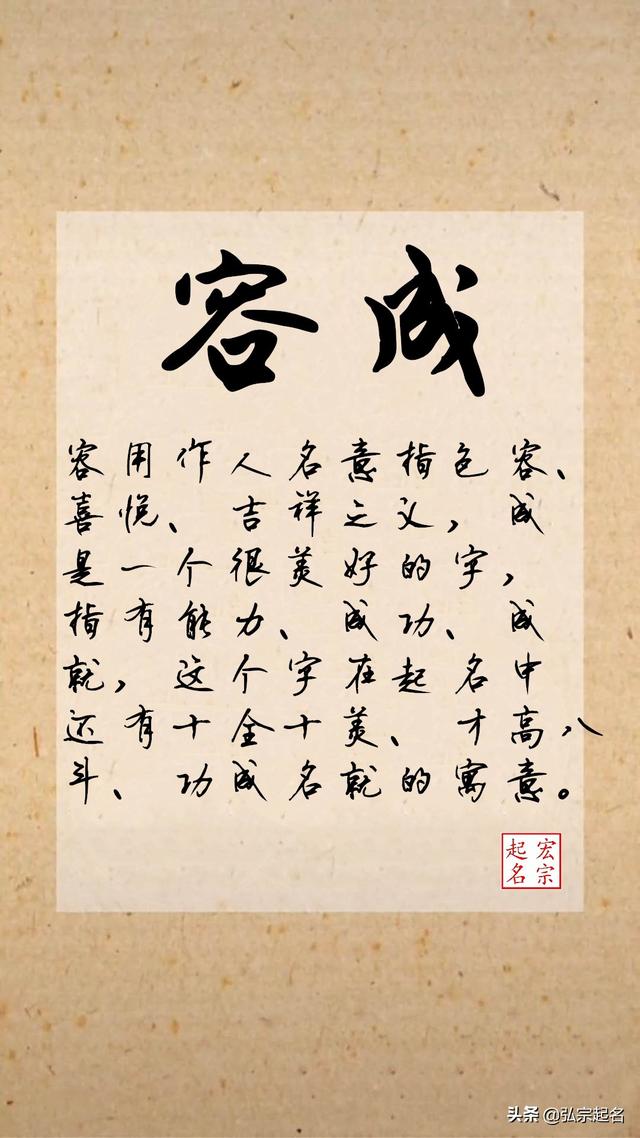 容成
容用作人名意指色容、
喜悦、吉祥之义，成
是一个很美好的字，
指有能力、成功、成
就，这个字在起名中
还有十全十美、才高八
斗、功成名就的寓意。
宏宗
起名
头条 @弘宗起名